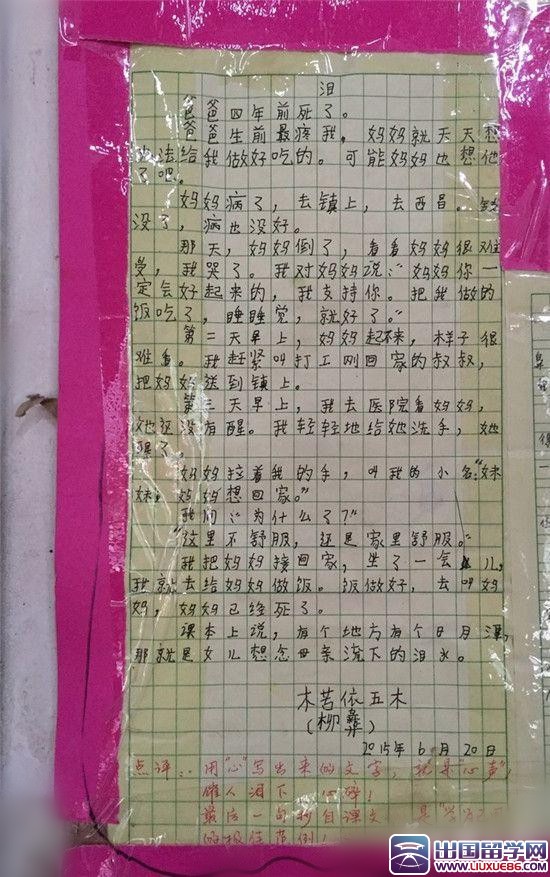 泪
爸爸四年前死了。
爸爸生前最疼我。妈妈就天天想
办法给我做好吃的。可能妈妈也想他
了吧。
妈妈病了，去镇上，去西昌。钱
没了，病也没好。
那天，妈妈倒了，看看妈妈很难
受，我哭了。我对妈妈说：“妈妈你一
定会好起来的，我支持你。把我做的
饭吃了，睡睡觉，就好了。”
第二天早上，妈妈起不来，样子很
难看。我赶紧叫打工刚回家的叔叔，
把妈妈送到镇上。
第三天早上，我去医院看妈妈，
她还没有醒。我轻轻地给她洗手，她
醒了。
妈妈拉着我的手，叫我的小名：“妹
妹，妈妈想回家。”
我问：“为什么了？”
“这里不舒服，还是家里舒服。”
我把妈妈接回家，坐了一会儿，
我就去给妈妈做饭。饭做好，去叫妈
妈，妈妈已经死了。
课本上说，有个地方有个日月潭，
那就是女儿想念母亲流下的泪水。
木苦依五木
（柳彝）
2015年6月20日
点评：用“心”写出来的文字，就是“心声”，
催人泪下 心碎！
最后一句抄自课文，是“学为
的极佳范例！
出国留学网
WWW.LIUXUE86.COM